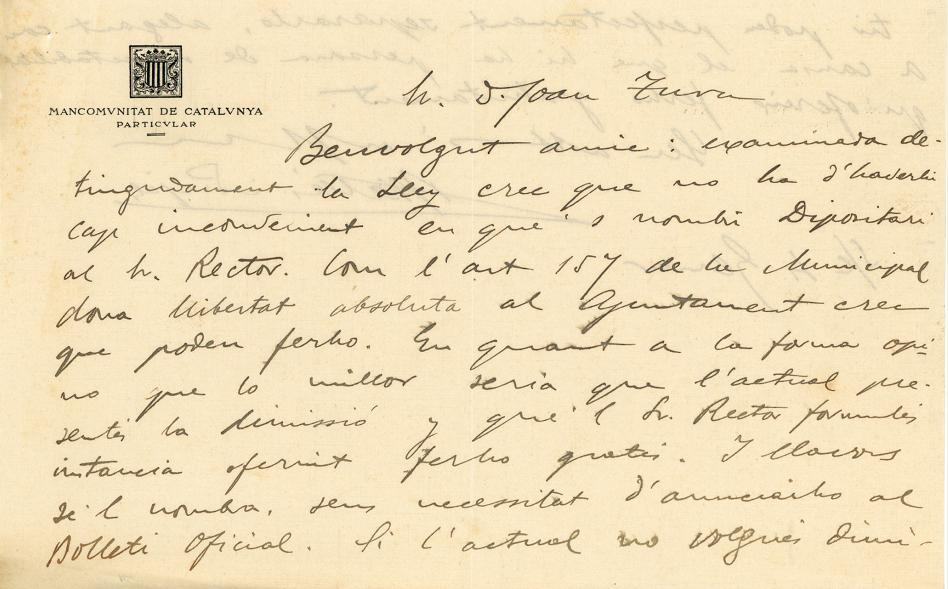 MANCOMVNITAT DE CATALVNYA
PARTICVLAR
Sr. D. Joan Zurva
Benvolgut amic: examinada de-
tingudament la Lley crec que no ha d'haverhi
cap inconvenient en que 's nombri Dipositari
al Sr. Rector. Com l'art 157 de la Municipal
dona llibertat absoluta al Ajuntament crec
que poden ferho. En quant a la forma opi-
no que lo millor seria que l'actual pre-
sentés la dimissió y que'l Sr. Rector formulés
instancia oferint ferho gratis. I llavors
se'l nombra, sens necessitat d'anunciarho al
Bolleti Oficial. Si l'actual no volgués dimi-